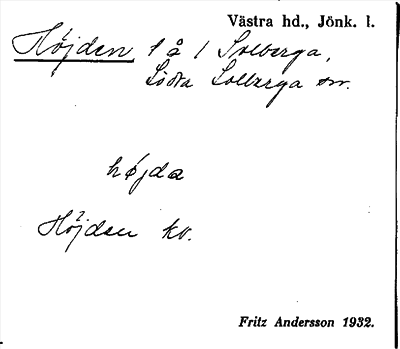 Västra hd., Jönk. l.
Höjden l å / Solberga,
Södra Solberga sn.
höjda
Höjden kv.
Fritz Andersson 1932.